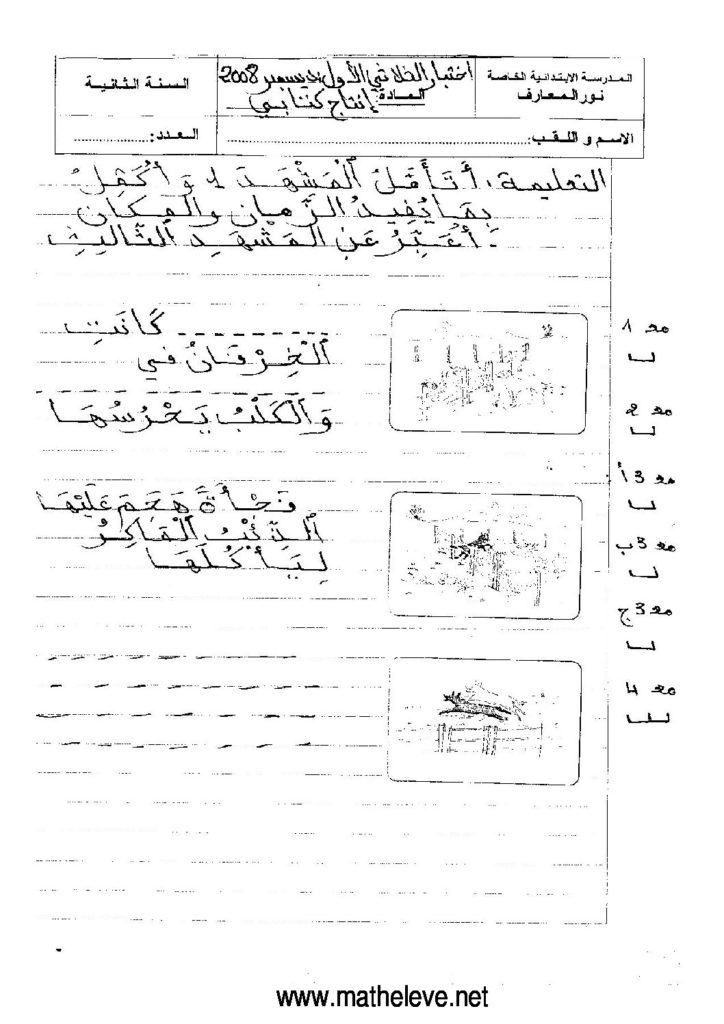 المدرسة الابتدائية الخاصة
نور المعارف
اختبار الثلاثي الأول ديسمبر 2008
المادة: إنتاج كتابي
السنة الثانية
الاسم و اللقب:
العدد:
التعليمة: أَتَأَمَّلُ الْمَشْهَدَ 1 وَ أُكْمِلُ
بِمَا يُفِيدُ الزَّمَانِ وَالْمَكَانِ
. أُعَبِّرُ عَنِ الْمَشْهَدِ الثَّالِثِ
كَانَتِ
الْخِرْفَانُ فِي
وَالْكَلْبُ يَحْرُسُهَا
فَجْأَةً هَجَمَ عَلَيْهَا
الذِّئْبُ الْمَاكِرُ
لِيَأْكُلَهَا
مع 1
مع 2
مع 3 أ
مع 3 ب
مع 3 ج
مع 4
www.matheleve.net